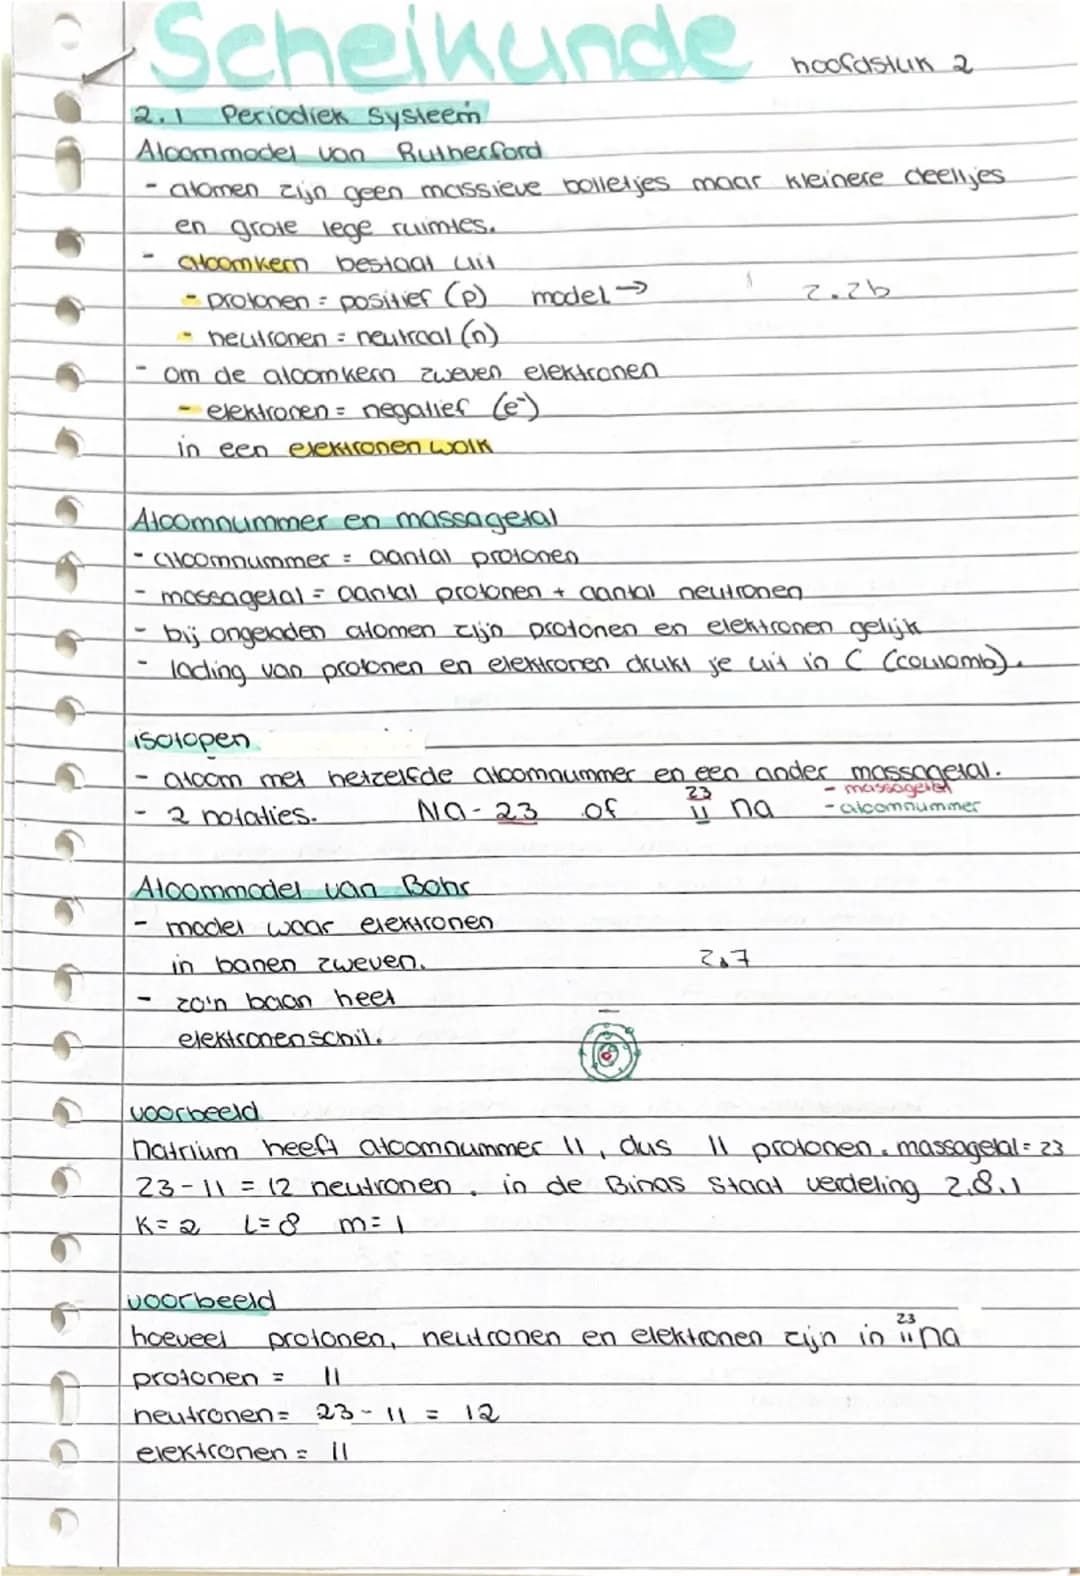 Scheikunde hoofdstuk 2
2.1 Periodiek Systeem
Atoommodel van Rutherford
- atomen zijn geen massieve bolletjes maar kleinere deeltjes
en grote lege ruimtes.
- atoomkern bestaat uit
- protonen = positief (p) model → 2.2b
- neutronen = neutraal (n)
- om de atoomkern zweven elektronen
- elektronen = negatief (e⁻)
in een elektronen wolk
Atoomnummer en massagetal
- atoomnummer = aantal protonen
- massagetal = aantal protonen + aantal neutronen
- bij ongeladen atomen zijn protonen en elektronen gelijk
- lading van protonen en elektronen drukt je uit in C (coulomb).
isotopen
- atoom met hetzelfde atoomnummer en een ander massagetal.
- 2 notaties. Na-23 of ²³₁₁ na - massagetal
- atoomnummer
Atoommodel van Bohr
- model waar elektronen
in banen zweven. 2.7
- zo'n baan heet
elektronenschil.
voorbeeld
Natrium heeft atoomnummer 11, dus 11 protonen. massagetal = 23
23 - 11 = 12 neutronen. in de Binas staat verdeling 2.8.1
K = 2 L = 8 m = 1
voorbeeld
hoeveel protonen, neutronen en elektronen zijn in ²³₁₁na
protonen = 11
neutronen = 23 - 11 = 12
elektronen = 11